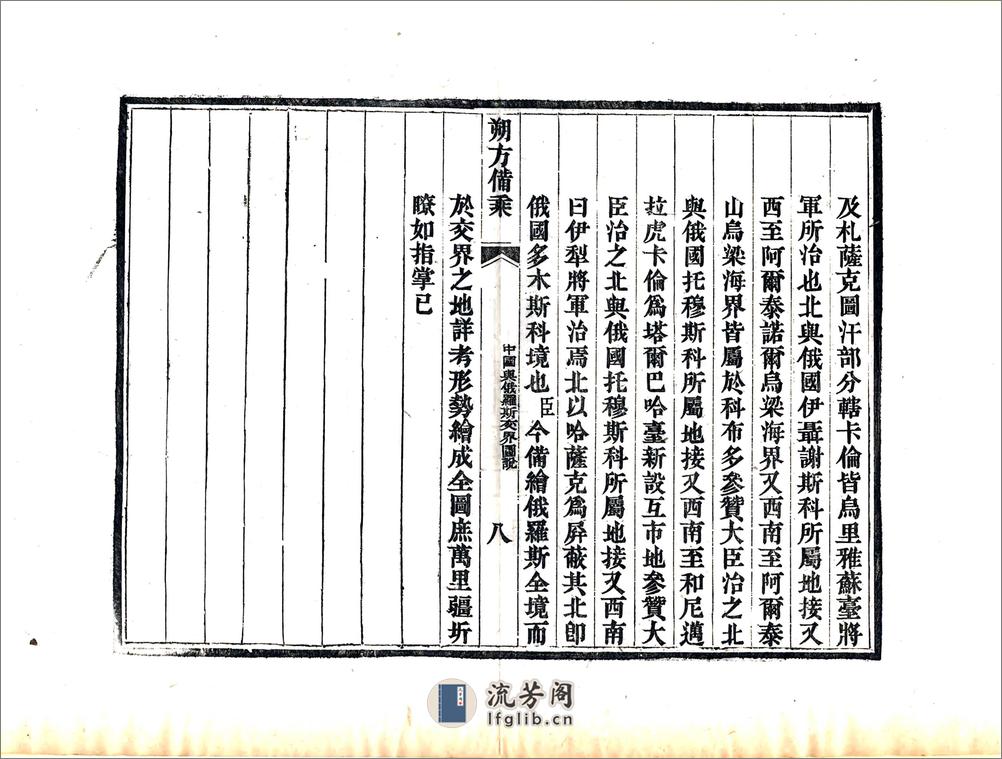 及札薩克圖汗部分轄卡倫皆烏里雅蘇臺將
軍所治也北與俄國伊聶謝斯科所屬地接又
西至阿爾泰諾爾烏梁海界又西南至阿爾泰
山烏梁海界皆屬於科布多參贊大臣治之北
與俄國托穆斯科所屬地接又西南至和尼邁
拉虎卡倫爲塔爾巴哈臺新設互市地參贊大
臣治之北與俄國托穆斯科所屬地接又西南
曰伊犁將軍治焉北以哈薩克爲屛蔽其北卽
俄國多木斯科境也臣今備繪俄羅斯全境而
朔方備乘
中國與俄羅斯交界圖說
八
於交界之地詳考形勢繪成全圖庶萬里疆圻
瞭如指掌已
流芳阁
lfglib.cn